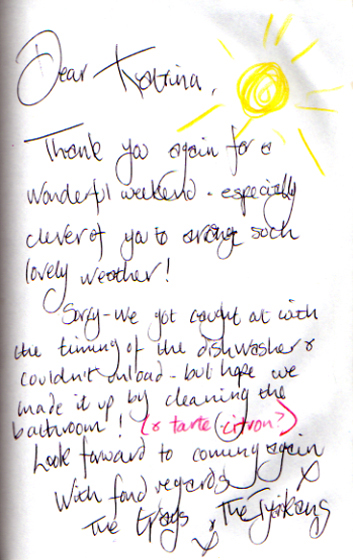 Dear Katrina,
Thank you again for a
wonderful weekend - especially
clever of you to arrange such
lovely weather!
Sorry - we got caught out with
the timing of the dishwasher &
couldn't unload - but hope we
made it up by cleaning the
bathroom! (& tarte citron?)
Look forward to coming again
With fond regards
The
x The
x